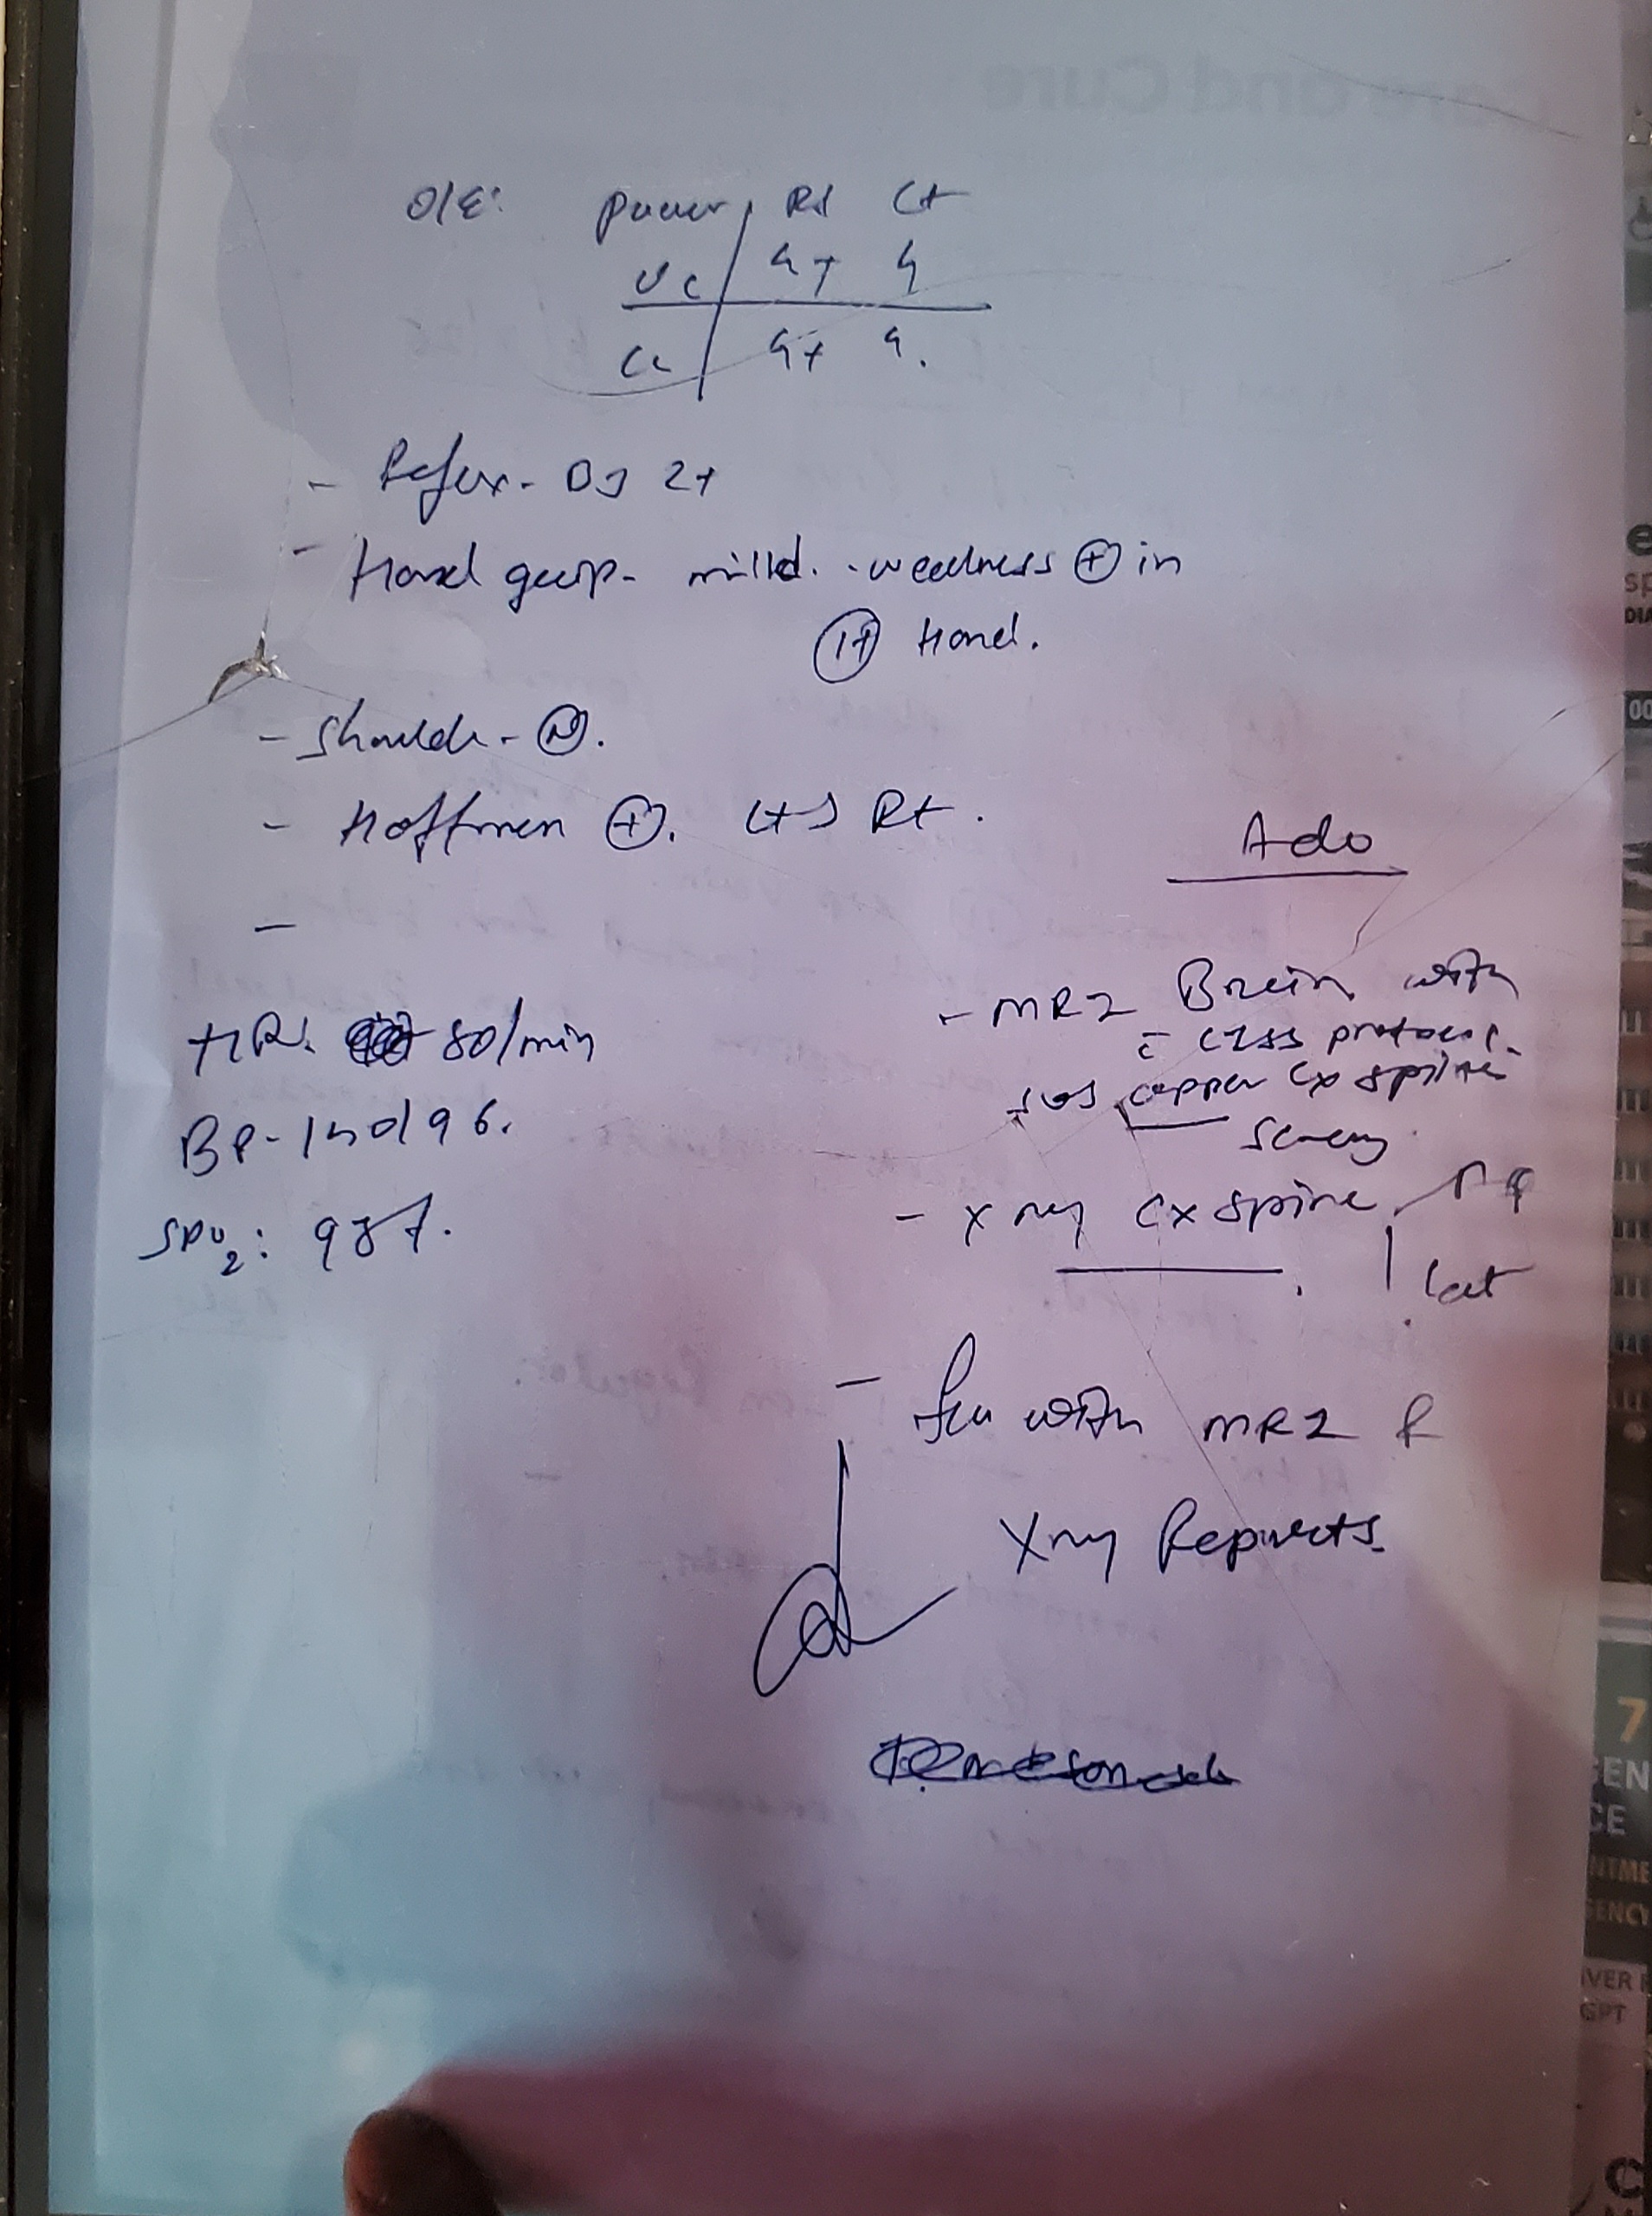 O/E: Power Rt Lt
UL 4+ 4
LL 4+ 4.
- Reflex - DJ 2+
- Hand grip - mild. weakness ⊕ in
Lt Hand.
- Shoulder - Ⓝ.
- Hoffmen ⊕. Lt > Rt.
Ado
-
HR: 80/min
BP - 140/96.
SPO2: 98%.
- MRI Brain with
c CISS protocol.
SOS upper Cx spine
- X ray Cx spine AP
lat
- with MRI &
Xray Reports